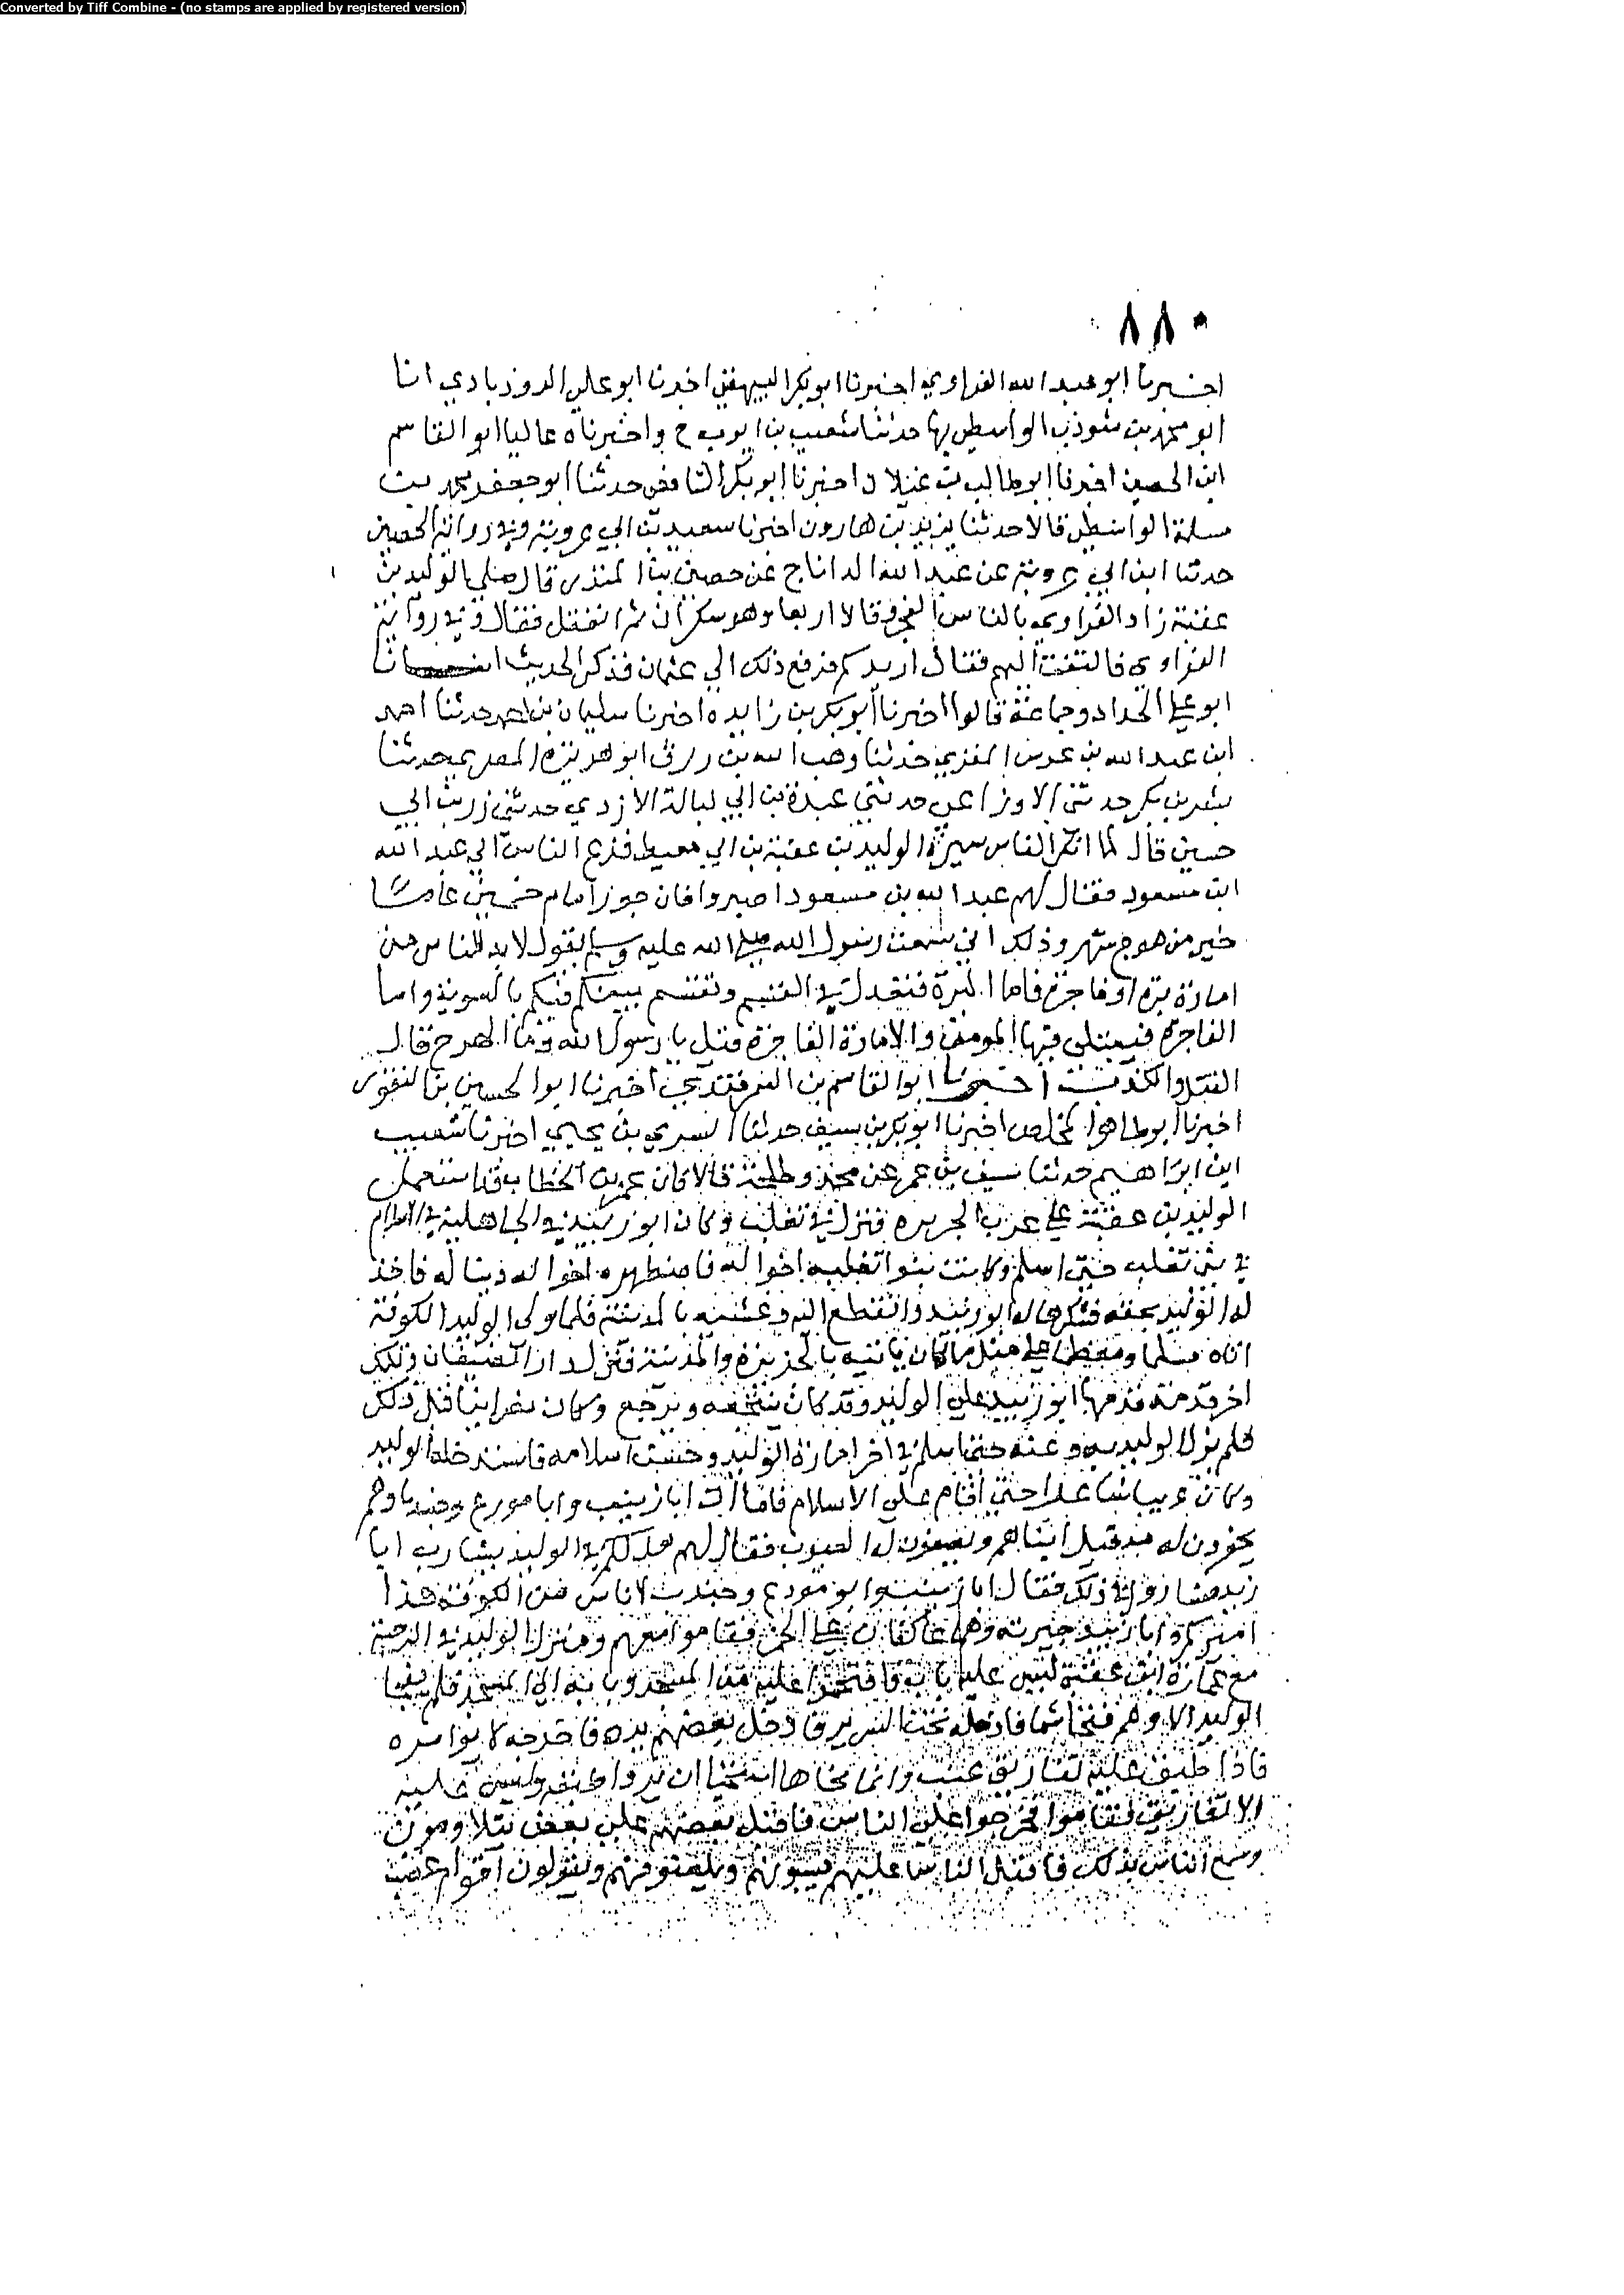 Converted by Tiff Combine - (no stamps are applied by registered version)
٨٨٠
اخبرنا ابو عبد الله الفراوي اخبرنا ابو بكر البيهقي اخبرنا ابو علي الروذبادي انا
ابو محمد بن شوذب الواسطي بها حدثنا شعيب بن ايوب ح واخبرناه عاليا ابو القاسم
ابن الحصين اخبرنا ابو طالب بن غيلان اخبرنا ابو بكر الشافعي حدثنا ابو جعفر محمد بن
مسلمة الواسطي قالا حدثنا يزيد بن هارون اخبرنا سعيد بن ابي عروبة وفي رواية الحصين
حدثنا ابن ابي عروبة عن عبد الله الداناج عن حصين بن المنذر قال صلى الوليد بن
عقبة زاد الفراوي بالناس الفجر وقالا اربعا وهو سكران ثم انفتل فقال وفي رواية
الفراوي فالتفت اليهم فقال ازيدكم فرفع ذلك الي عثمان فذكر الحديث انا
ابو علي الحداد وجماعة قالوا اخبرنا ابو بكر بن زايده اخبرنا سليمان بن احمد حدثنا احمد
ابن عبد الله بن عرس المقري حدثنا وهب الله بن رزق ابو هريره المصري حدثنا
بشر بن بكر حدثني الاوزاعي حدثني عبدة بن ابي لبابة الازدي حدثني زر بن ابي
حسين قال لما انكر الناس سيرة الوليد بن عقبة بن ابي معيط فزع الناس الي عبد الله
ابن مسعود فقال لهم عبد الله بن مسعود اصبروا فان جور امام خمسين عاما
خير من هرج شهر وذلك اني سمعت رسول الله صلى الله عليه وسلم يقول لا بد للناس من
امارة برة او فاجرة فاما البرة فتعدل في القسم وتقسم بينكم فيئكم بالسوية واما
الفاجرة فيبتلى فيها المومن والامارة الفاجرة قيل يا رسول الله وما الهرج قال
القتل والكذب اخبرنا ابو القاسم بن السمرقندي اخبرنا ابو الحسين بن النقور
اخبرنا ابو طاهر المخلص اخبرنا ابو بكر بن سيف حدثنا السري بن يحيى اخبرنا شعيب
ابن ابراهيم حدثنا سيف بن عمر عن محمد وطلحة قالا كان عمر بن الخطاب قد استعمل
الوليد بن عقبة علي عرب الجزيره فنزل في تغلب وكان ابو زبيد في الجاهلية في الاسلام
في بني تغلب حتى اسلم وكانت بنوا تغلب اخواله فاضطهره اخواله دينا له فاخذ
له الوليد بحقه فشكرها له ابو زبيد وانقطع اليه وغشيه بالمدينة فلما ولى الوليد الكوفة
اتاه مسلما ومعظما علي مثل ما كان ياتيه بالجزيرة والمدينة فنزل دار الضيفان وتلك
اخر قدمة قدمها ابو زبيد على الوليد وقد كان ينتجعه ويرجع وكان نصرانيا قبل ذلك
فلم يزل الوليد به وعنه حتى اسلم في اخر امارة الوليد وحسن اسلامه فاستدخله الوليد
وكان عربيا شاعرا حتى اقام على الاسلام فاتا ات ابا زينب وابا مورع وجندبا وهم
يحقدون له مذ قتل ابناهم ويضعون له العيون فقال لهم هل لكم في الوليد يشارب ابا
زبيد فثاروا في ذلك فقال ابا زينب وابو مورع وجندب لاناس من الكوفة هذا
اميركم وابا زبيد خيرته وهما عاكفان علي الخمر فقاموا معهم ومنزل الوليد في الرحبة
مع عمارة ابن عقبة ليس عليه باب فاقتحموا عليه من المسجد وبابه الى المسجد فلم يفجا
الوليد الا وهم فنحا شيا فادخله تحت السرير فادخل بعضهم يده فاخرجه لا يوامره
فاذا طبق عليه تفاريق عنب وانما نحاها استحيا ان يروا طبقه وليس عليه
الا تفاريق فقاموا فخرجوا على الناس فاقبل بعضهم على بعض يتلاومون
وسمع الناس بذلك فاقبل الناس عليهم يسبونهم ويلعنونهم ويقولون اقوام غضب